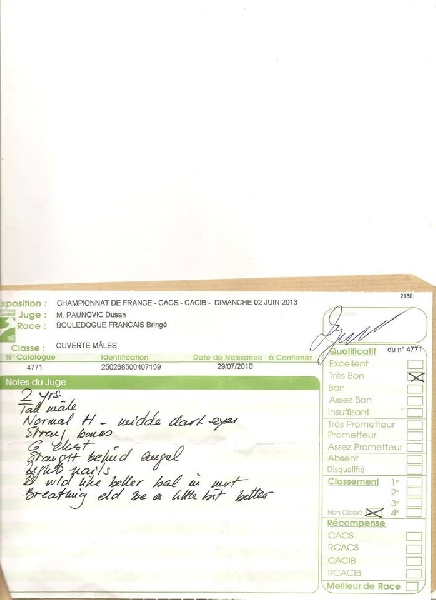 2150
Exposition : CHAMPIONNAT DE FRANCE - CACS - CACIB - DIMANCHE 02 JUIN 2013
Juge : M. PAUNOVIC Dusan
Race : BOULEDOGUE FRANCAIS Bringé
Classe : OUVERTE MÂLES
N° Catalogue Identification Date de Naissance à Confirmer
4771 250268500407159 29/07/2010
Notes du Juge
2 yrs.
Tall male
Normal H - middle dark eyes
Strong bones
G chest
Straight behind angul
nails
better in
Breathing a little bit better
Qualificatif du n° 4771
Excellent
Très Bon
Bon
Assez Bon
Insuffisant
Très Prometteur
Prometteur
Assez Prometteur
Absent
Disqualifié
Classement 1er
2e
3e
Non Classé 4e
Récompense
CACS
RCACS
CACIB
RCACIB
Meilleur de Race